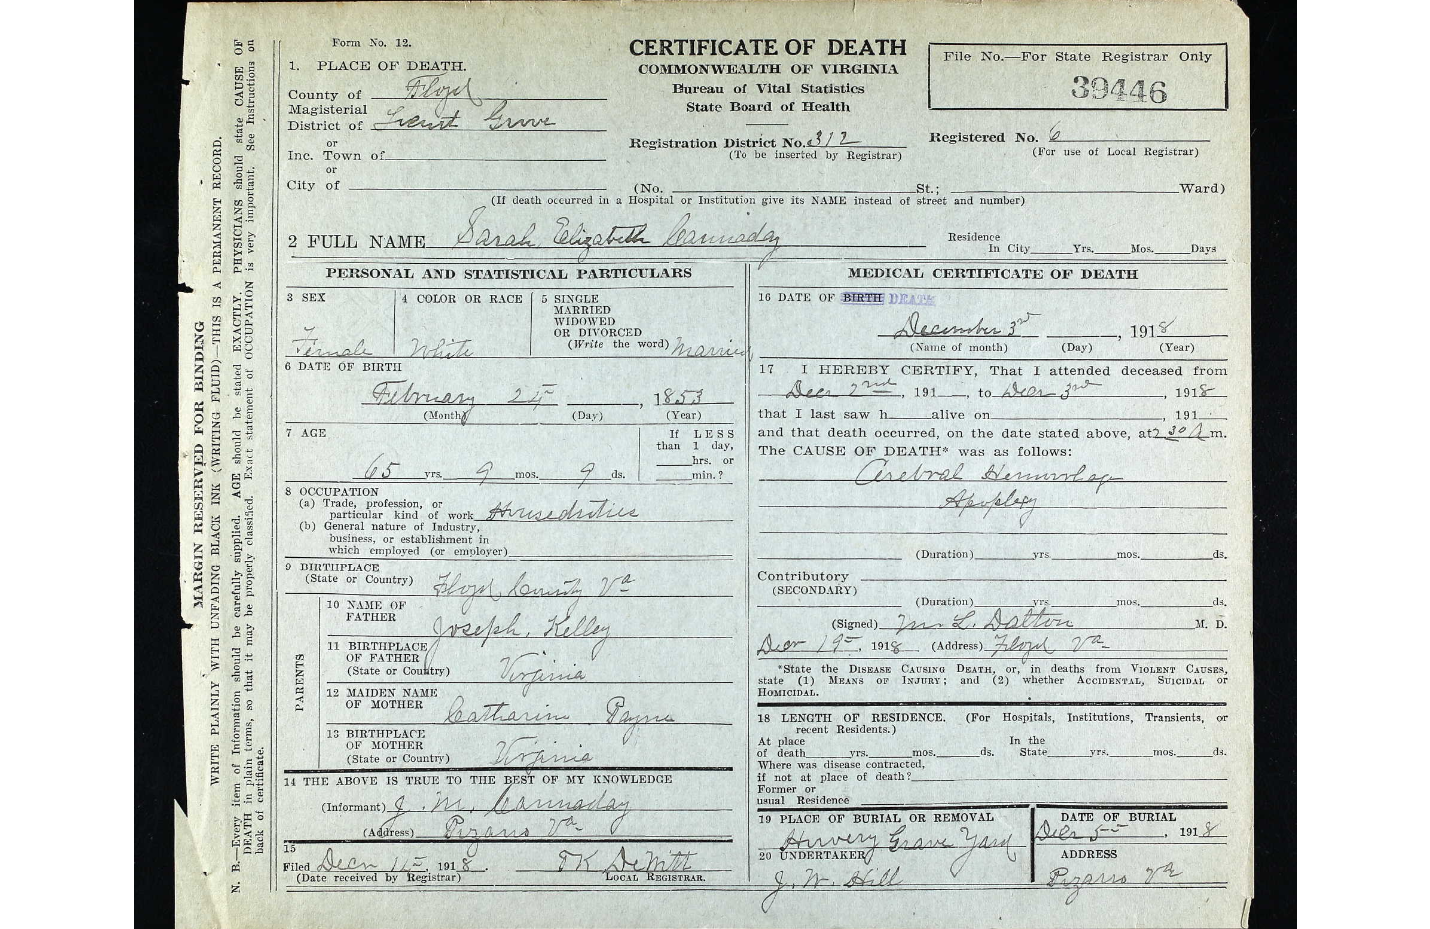 Form No. 12.
CERTIFICATE OF DEATH
COMMONWEALTH OF VIRGINIA
Bureau of Vital Statistics
State Board of Health
File No.—For State Registrar Only
39446
1. PLACE OF DEATH.
County of Floyd
Magisterial
District of Locust Grove
or
Inc. Town of
or
City of
Registration District No. 312
(To be inserted by Registrar)
Registered No. 6
(For use of Local Registrar)
(No. St.; Ward)
(If death occurred in a Hospital or Institution give its NAME instead of street and number)
2 FULL NAME Sarah Elizabeth Cannaday
Residence
In City Yrs. Mos. Days
PERSONAL AND STATISTICAL PARTICULARS
3 SEX
Female
4 COLOR OR RACE
White
5 SINGLE
MARRIED
WIDOWED
OR DIVORCED
(Write the word) Married
6 DATE OF BIRTH
February 24, 1853
(Month) (Day) (Year)
7 AGE
65 yrs. 9 mos. 9 ds.
If LESS
than 1 day,
hrs. or
min.?
8 OCCUPATION
(a) Trade, profession, or
particular kind of work Houseduties
(b) General nature of Industry,
business, or establishment in
which employed (or employer)
9 BIRTHPLACE
(State or Country) Floyd County Va
PARENTS
10 NAME OF
FATHER
Joseph. Kelley
11 BIRTHPLACE
OF FATHER
(State or Country) Virginia
12 MAIDEN NAME
OF MOTHER
Catharine Payne
13 BIRTHPLACE
OF MOTHER
(State or Country) Virginia
14 THE ABOVE IS TRUE TO THE BEST OF MY KNOWLEDGE
(Informant) J. M. Cannaday
(Address) Pizarro Va
15
Filed Decr 1918. T K DeWitt
(Date received by Registrar) LOCAL REGISTRAR.
MEDICAL CERTIFICATE OF DEATH
16 DATE OF BIRTH DEATH
December 3rd, 1918
(Name of month) (Day) (Year)
17 I HEREBY CERTIFY, That I attended deceased from
Decr 2nd, 191 , to Decr 3rd, 1918
that I last saw h alive on , 191
and that death occurred, on the date stated above, at 2 30 A m.
The CAUSE OF DEATH* was as follows:
Cerebral Hemorrhage
Apoplexy
(Duration) yrs. mos. ds.
Contributory
(SECONDARY)
(Duration) yrs. mos. ds.
(Signed) M L Dalton M. D.
Decr 19, 1918 (Address) Floyd Va
*State the DISEASE CAUSING DEATH, or, in deaths from VIOLENT CAUSES,
state (1) MEANS OF INJURY; and (2) whether ACCIDENTAL, SUICIDAL or
HOMICIDAL.
18 LENGTH OF RESIDENCE. (For Hospitals, Institutions, Transients, or
recent Residents.)
At place In the
of death yrs. mos. ds. State yrs. mos. ds.
Where was disease contracted,
if not at place of death?
Former or
usual Residence
19 PLACE OF BURIAL OR REMOVAL
Grave Yard
DATE OF BURIAL
Decr 5, 1918
20 UNDERTAKER
J. W. Hill
ADDRESS
Pizarro Va
MARGIN RESERVED FOR BINDING
WRITE PLAINLY WITH UNFADING BLACK INK (WRITING FLUID)—THIS IS A PERMANENT RECORD.
N. B.—Every item of Information should be carefully supplied. AGE should be stated EXACTLY. PHYSICIANS should state CAUSE OF
DEATH in plain terms, so that it may be properly classified. Exact statement of OCCUPATION is very important. See Instructions on
back of certificate.